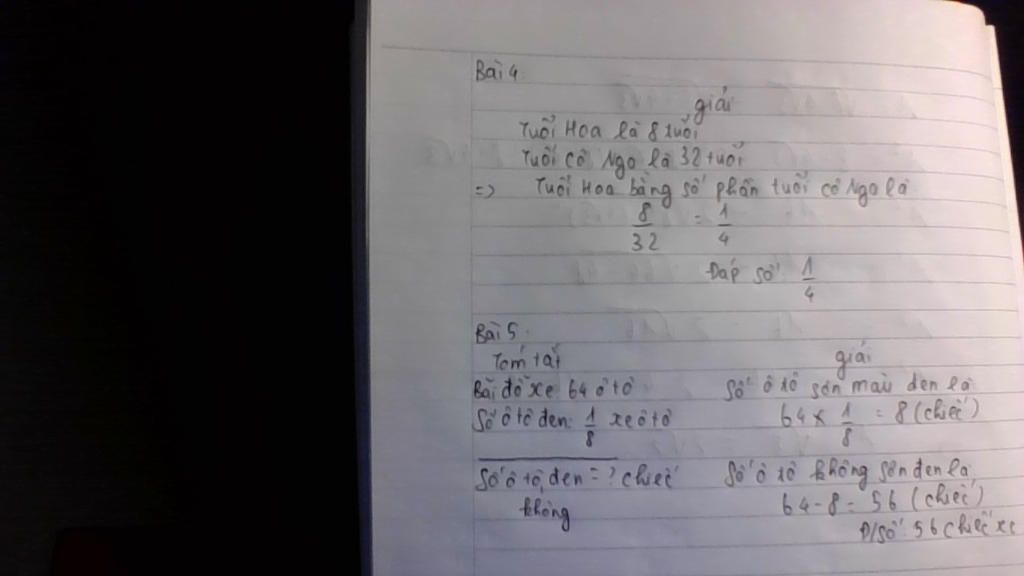 Bài 4:
giải
Tuổi Hoa là 8 tuổi
Tuổi cô Nga là 32 tuổi
=> Tuổi Hoa bằng số phần tuổi cô Nga là
8/32 = 1/4
Đáp số: 1/4
Bài 5:
Tóm tắt
Bãi đỗ xe: 64 ô tô
Số ô tô đen: 1/8 xe ô tô
Số ô tô đen = ? chiếc
không
giải
Số ô tô sơn màu đen là
64 x 1/8 = 8 (chiếc)
Số ô tô không sơn đen là
64 - 8 = 56 (chiếc)
Đ/Số: 56 chiếc xe